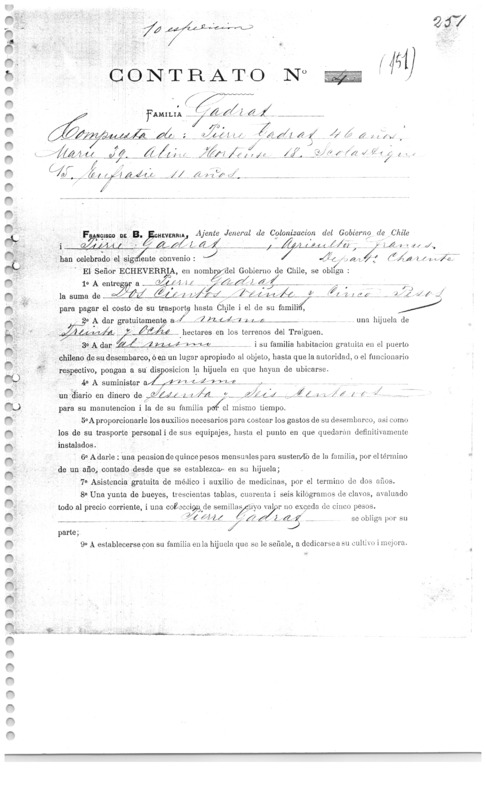 1º espedicion
251
CONTRATO Nº 4 (151)
FAMILIA Gadrat
Compuesta de: Pierre Gadrat 46 años.
Marie 39. Aline Hortense 18. Scolastique
15. Eufrasie 11 años.
FRANCISCO DE B. ECHEVERRIA, Ajente Jeneral de Colonizacion del Gobierno de Chile
i Pierre Gadrat, Agricultor, frances.
han celebrado el siguiente convenio: Departº. Charente
El Señor ECHEVERRIA, en nombre del Gobierno de Chile, se obliga:
1º A entregar a Pierre Gadrat
la suma de Dos Cientos Veinte y Cinco Pesos
para pagar el costo de su trasporte hasta Chile i el de su familia,
2º A dar gratuitamente al mismo una hijuela de
Treinta y Ocho hectares en los terrenos del Traiguen.
3º A dar al mismo i su familia habitacion gratuita en el puerto
chileno de su desembarco, ó en un lugar apropiado al objeto, hasta que la autoridad, o el funcionario
respectivo, pongan a su disposicion la hijuela en que hayan de ubicarse.
4º A suministar al mismo
un diario en dinero de Sesenta y Seis Centavos
para su manutencion i la de su familia por el mismo tiempo.
5º A proporcionarle los auxilios necesarios para costear los gastos de su desembarco, asi como
los de su trasporte personal i de sus equipajes, hasta el punto en que quedarán definitivamente
instalados.
6º A darle: una pension de quince pesos mensuales para sustendo de la familia, por el término
de un año, contado desde que se establezca en su hijuela;
7º Asistencia gratuita de médico i auxilio de medicinas, por el termino de dos años.
8º Una yunta de bueyes, trescientas tablas, cuarenta i seis kilogramos de clavos, avaluado
todo al precio corriente, i una coleccion de semillas cuyo valor no exceda de cinco pesos.
Pierre Gadrat se obliga por su
parte;
9º A establecerse con su familia en la hijuela que se le señale, a dedicarse a su cultivo i mejora.